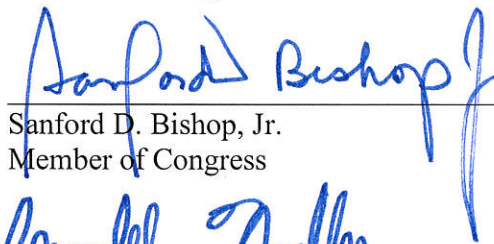 Sanford Bishop Jr
Sanford D. Bishop, Jr.
Member of Congress